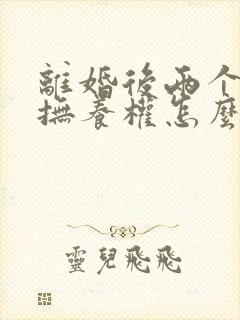 離婚後兩个
撫養權怎麼
靈兒飛飛